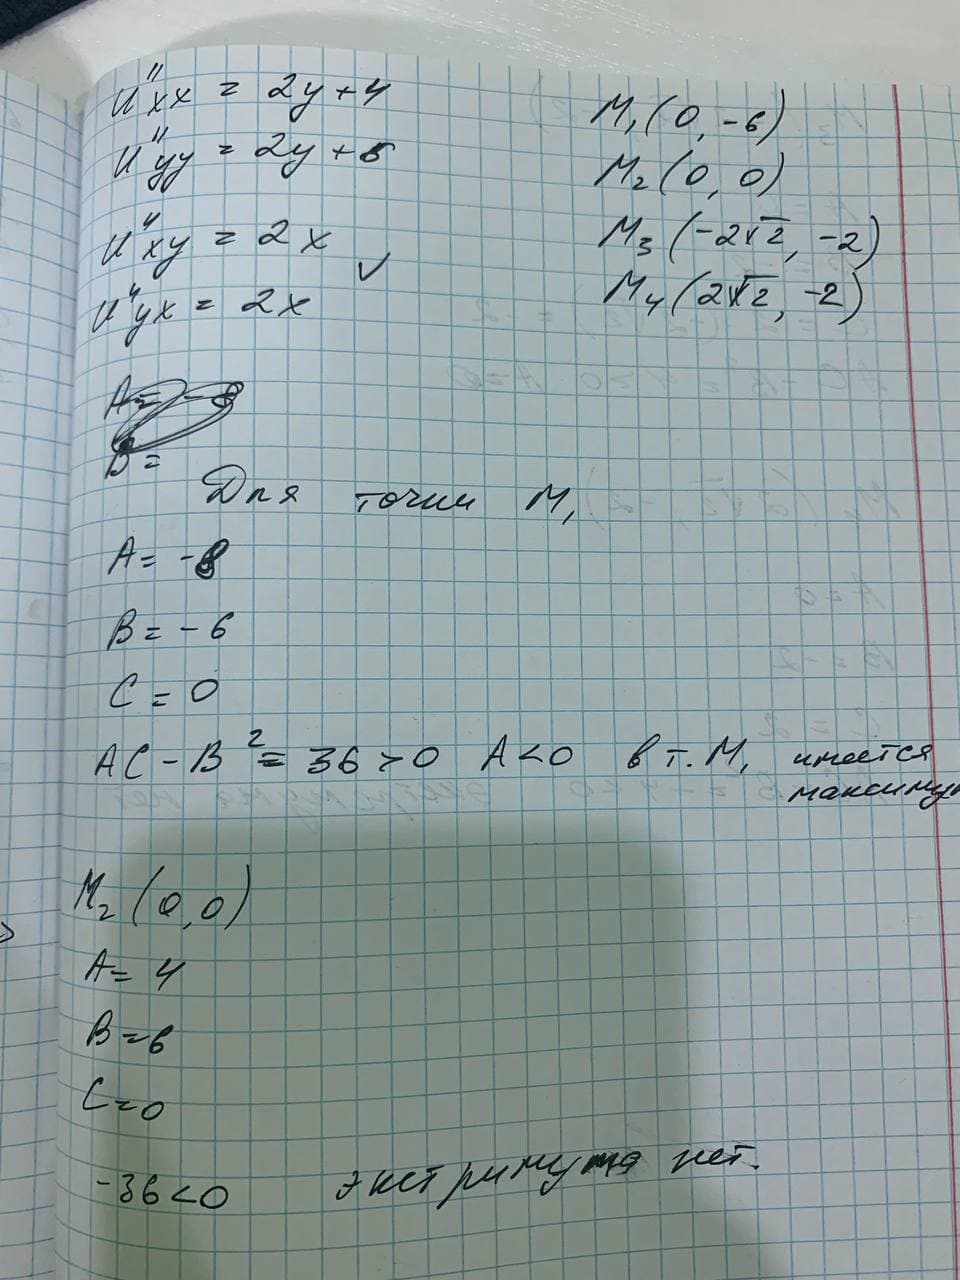 U''xx = 2y+4
M₁(0, -6)
U''yy = 2y+6
M₂(0, 0)
U''xy = 2x
M₃(-2√2, -2)
U''yx = 2x
M₄(2√2, -2)
B =
Для точки M₁
A = -8
B = -6
C = 0
AC - B² = 36 > 0 A < 0 в т. M₁ имеется
максимум
M₂ (0,0)
A = 4
B = 6
C = 0
-36 < 0 экстримума нет.